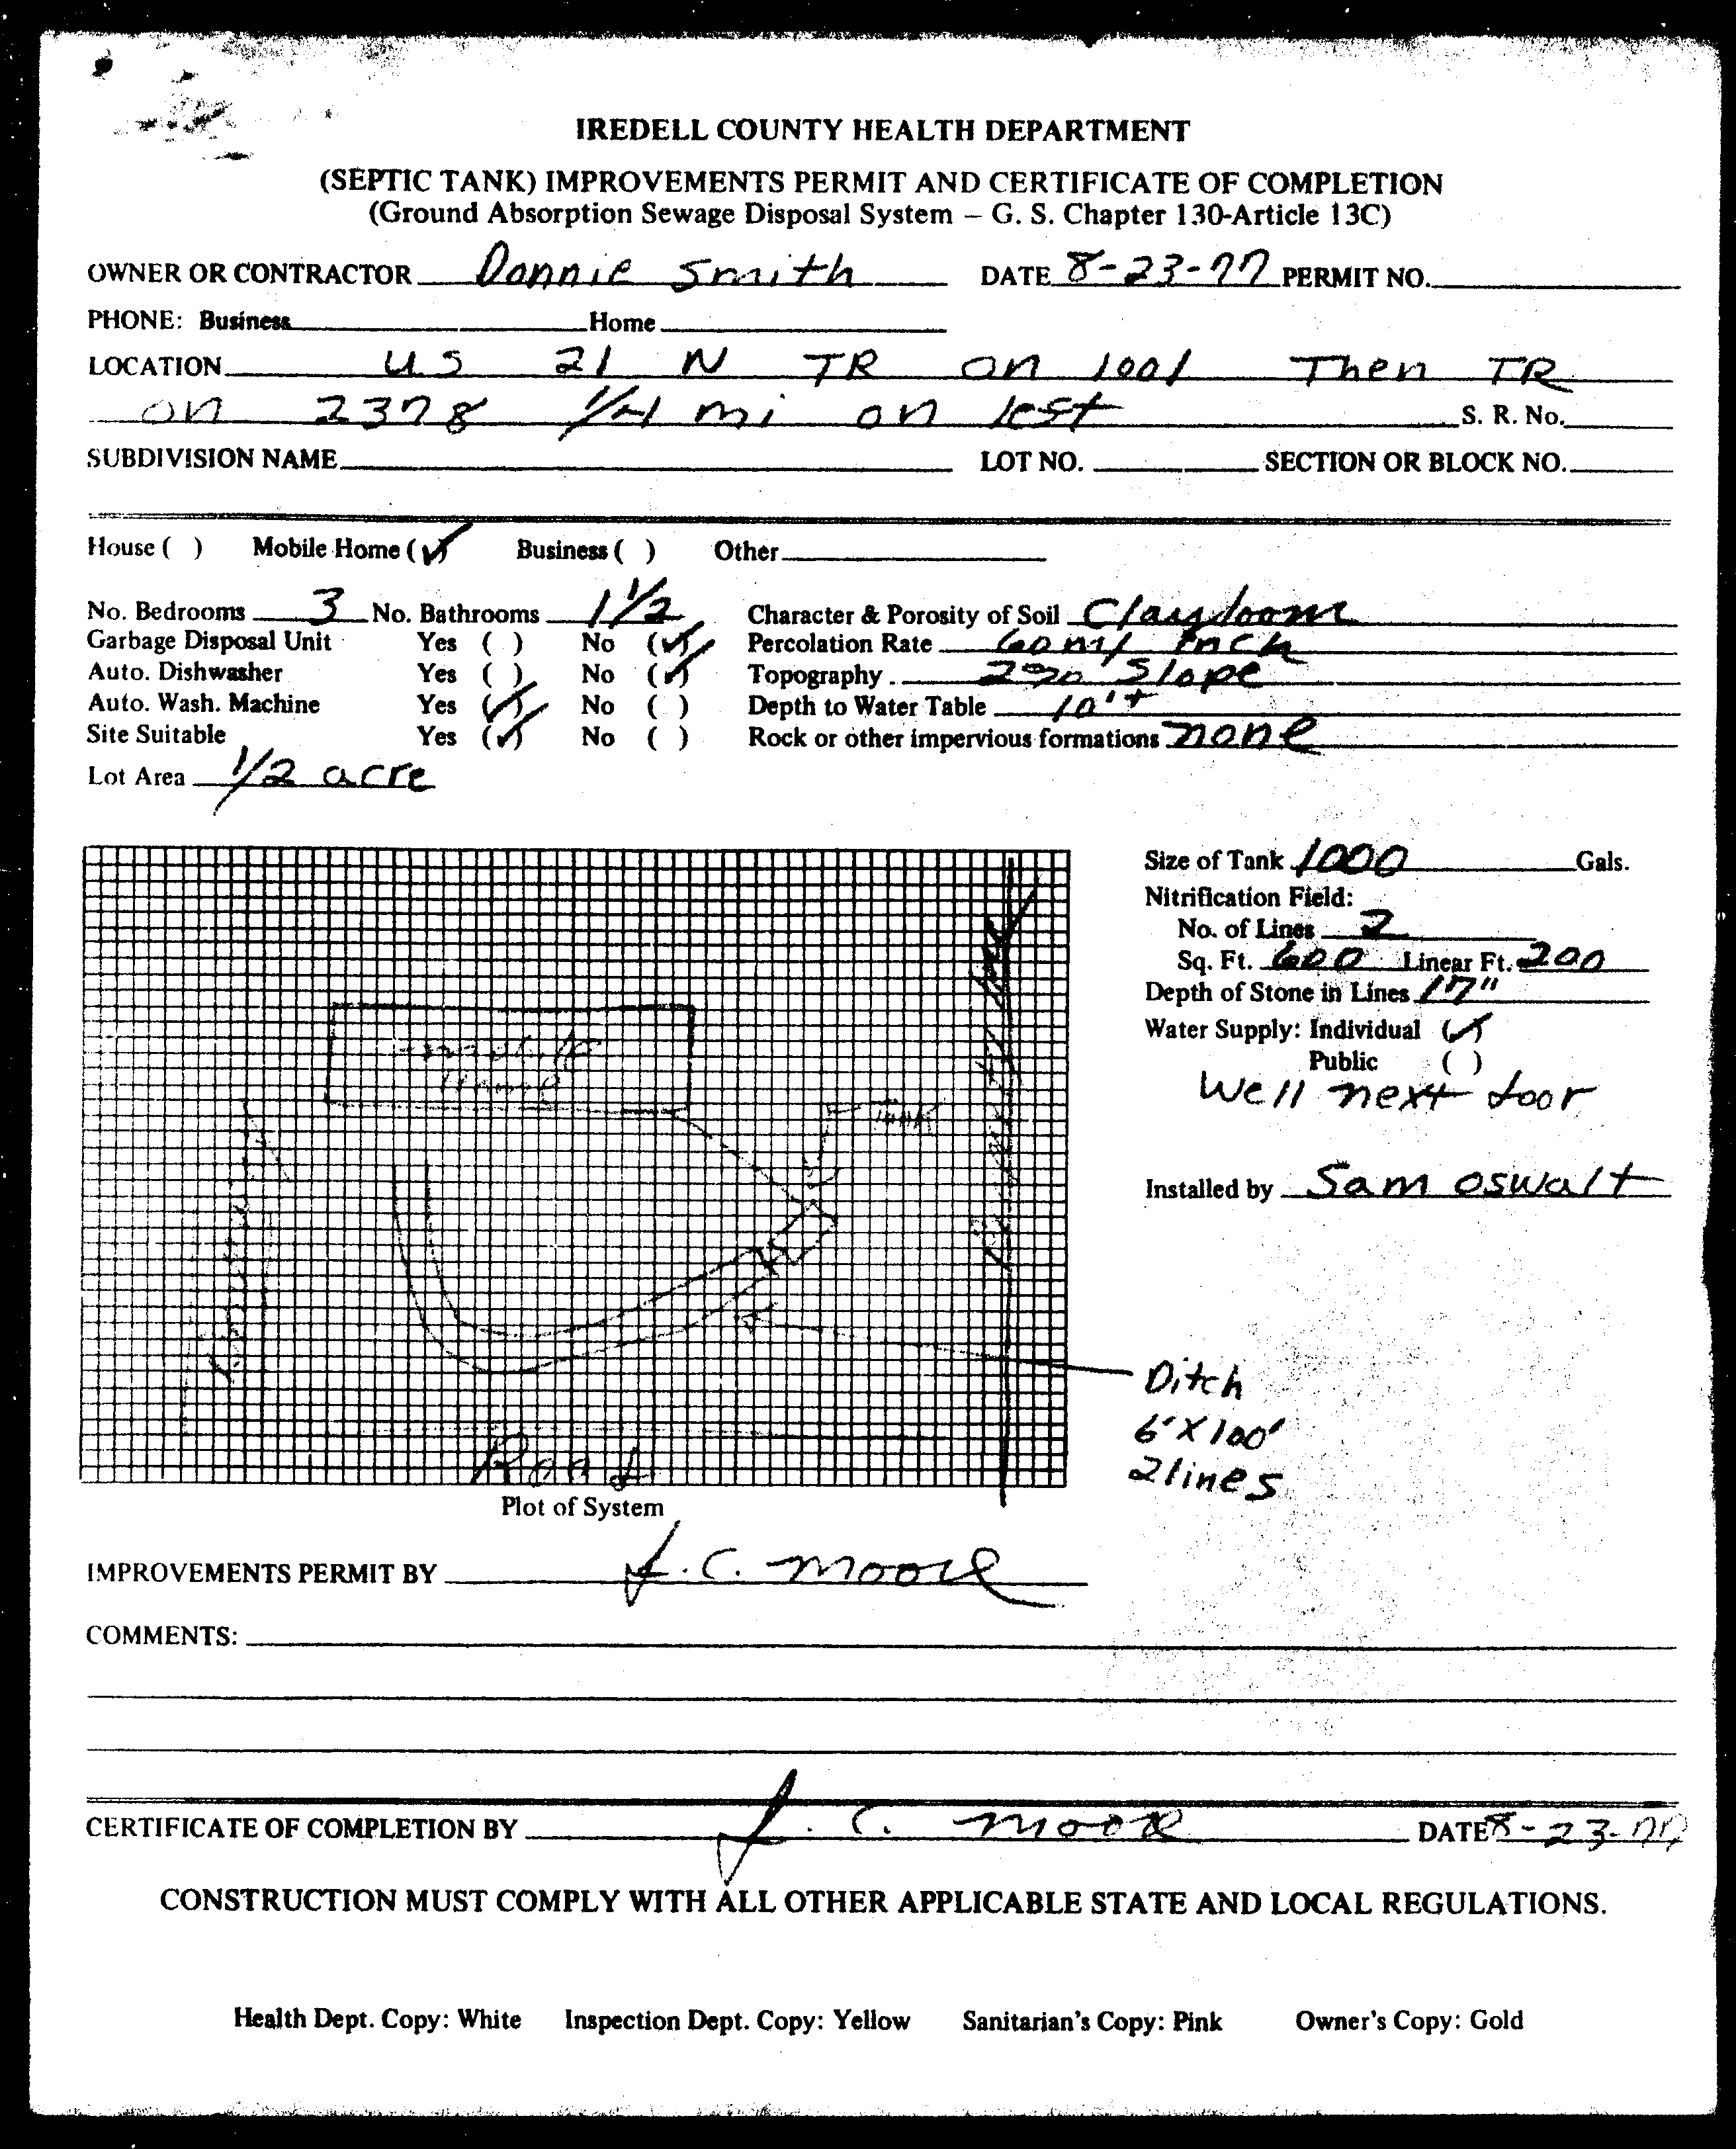 IREDELL COUNTY HEALTH DEPARTMENT
(SEPTIC TANK) IMPROVEMENTS PERMIT AND CERTIFICATE OF COMPLETION
(Ground Absorption Sewage Disposal System – G. S. Chapter 130-Article 13C)
OWNER OR CONTRACTOR Donnie Smith DATE 8-23-77 PERMIT NO.
PHONE: Business Home
LOCATION US 21 N TR on 1001 Then TR
on 2378 1/4 mi on lest S. R. No.
SUBDIVISION NAME LOT NO. SECTION OR BLOCK NO.
House ( ) Mobile Home (✓) Business ( ) Other
No. Bedrooms 3 No. Bathrooms 1 1/2 Character & Porosity of Soil Clay loom
Garbage Disposal Unit Yes ( ) No (✓) Percolation Rate 60 m/ inch
Auto. Dishwasher Yes ( ) No (✓) Topography 2% Slope
Auto. Wash. Machine Yes (✓) No ( ) Depth to Water Table 10'+
Site Suitable Yes (✓) No ( ) Rock or other impervious formations none
Lot Area 1/2 acre
Size of Tank 1000 Gals.
Nitrification Field:
No. of Lines 2
Sq. Ft. 600 Linear Ft. 200
Depth of Stone in Lines 17"
Water Supply: Individual (✓)
Public ( )
Well next door
Installed by Sam Oswalt
mobile
Home
Tank
Ditch
6'X100'
2 lines
Road
Plot of System
IMPROVEMENTS PERMIT BY J. C. Moore
COMMENTS:
CERTIFICATE OF COMPLETION BY J. C. Moore DATE 8-23-77
CONSTRUCTION MUST COMPLY WITH ALL OTHER APPLICABLE STATE AND LOCAL REGULATIONS.
Health Dept. Copy: White Inspection Dept. Copy: Yellow Sanitarian's Copy: Pink Owner's Copy: Gold